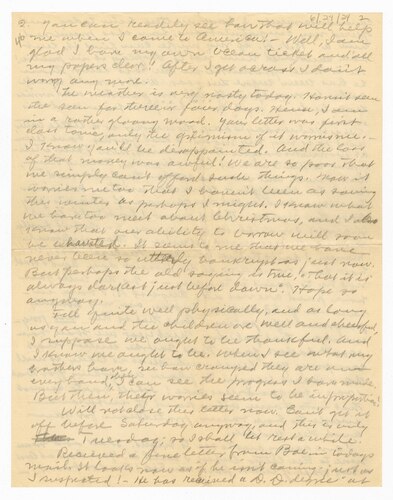 6/27/29 2
You can readily see how that will help
me when I come to America - Well, I am
glad I have my own ocean ticket and all
my papers clear! After I get across I don't
worry any more.
The weather is very nasty today. Haven't seen
the sun for three or four days. Hence, I am
in a rather gloomy mood. Your letter was first
class tonic, only the of it worries me. -
I know you'll be disappointed. And the loss
of that money was awful! We are so poor that
we simply can't afford such things. Now it
worries me too that I haven't been as saving
this winter as perhaps I might. I know what
we have too meet about Christmas, and I also
know that our ability to borrow will soon
be exhausted. It seems to me that we have
never been so utterly bankrupt as just now.
But perhaps the old saying is true, "that it is
always darkest just before dawn". Hope so
anyway.
Feel quite well physically, and as long
as you and the children are well and cheerful,
I suppose we ought to be thankful. And
I know we ought to be. When I see what my
brothers have, see how cramped they are
every hand, I can see the progress I have made.
But then, their worries seem to be
Will not close this letter now. Can't get it
off before Saturday anyway, and this is only
Tuesday; so I shall let rest a while.
Received a fine letter from in today's
mail. It looks now as if he isn't coming; just as
I suspected! - He has received a D. D. degree at